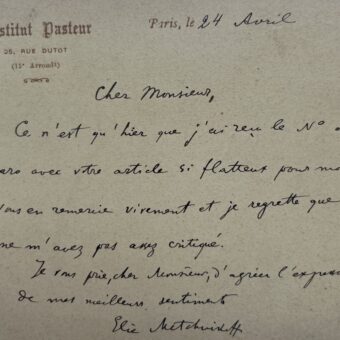 stitut Pasteur
25, RUE DUTOT
(15e Arrondt)
Paris, le 24 Avril
Cher Monsieur,
Ce n'est qu'hier que j'ai reçu le No
aro avec votre article si flatteur pour mo
ous en remercie vivement et je regrette que
ne m'avez pas assez critiqué.
Je vous prie, cher Monsieur, d'agréer l'expres
de mes meilleurs sentiments
Elie Metchnikoff